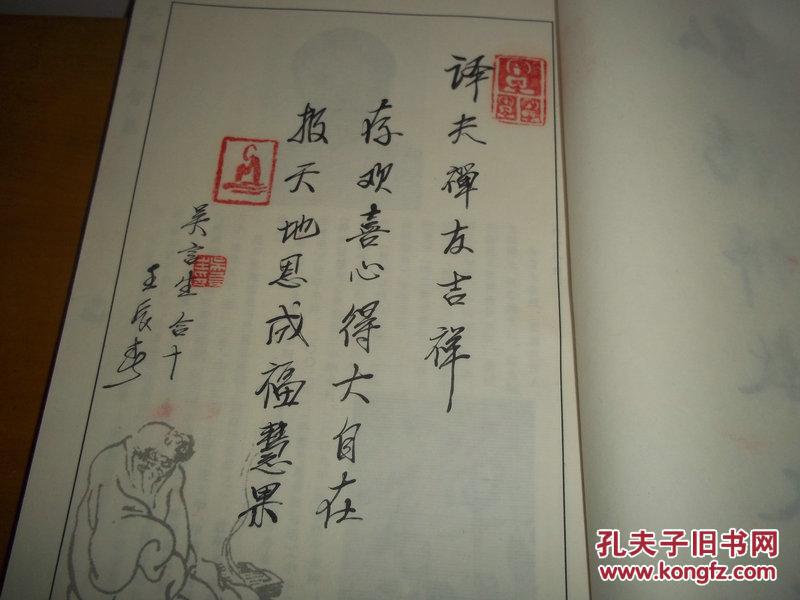 译夫禅友吉祥
存欢喜心得大自在
报天地恩成福慧果
吴言生合十
壬辰春
孔夫子旧书网
www.kongfz.com